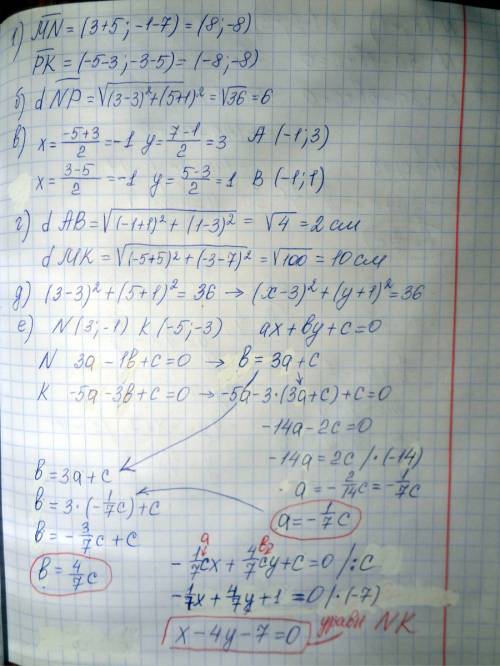 1) MN = (3+5; -1-7) = (8; -8)
PK = (-5-3; -3-5) = (-8; -8)
б) d NP = √(3-3)²+(5+1)² = √36 = 6
в) x = (-5+3)/2 = -1 y = (7-1)/2 = 3 A (-1; 3)
x = (3-5)/2 = -1 y = (5-3)/2 = 1 B (-1; 1)
г) d AB = √(-1+1)² + (1-3)² = √4 = 2 см
d MK = √(-5+5)² + (-3-7)² = √100 = 10 см
д) (3-3)² + (5+1)² = 36 → (x-3)² + (y+1)² = 36
е) N (3; -1) K (-5; -3) ax + by + c = 0
N 3a - 1b + c = 0 → b = 3a + c
K -5a - 3b + c = 0 → -5a - 3·(3a+c) + c = 0
-14a - 2c = 0
-14a = 2c /·(-14)
a = -2/14c = -1/7c
a = -1/7c
b = 3a + c
b = 3·(-1/7c) + c
b = -3/7c + c
b = 4/7c
a b
-1/7cx + 4/7cy + c = 0 /:c
-1/7x + 4/7y + 1 = 0 /·(-7)
x - 4y - 7 = 0 уравн NK